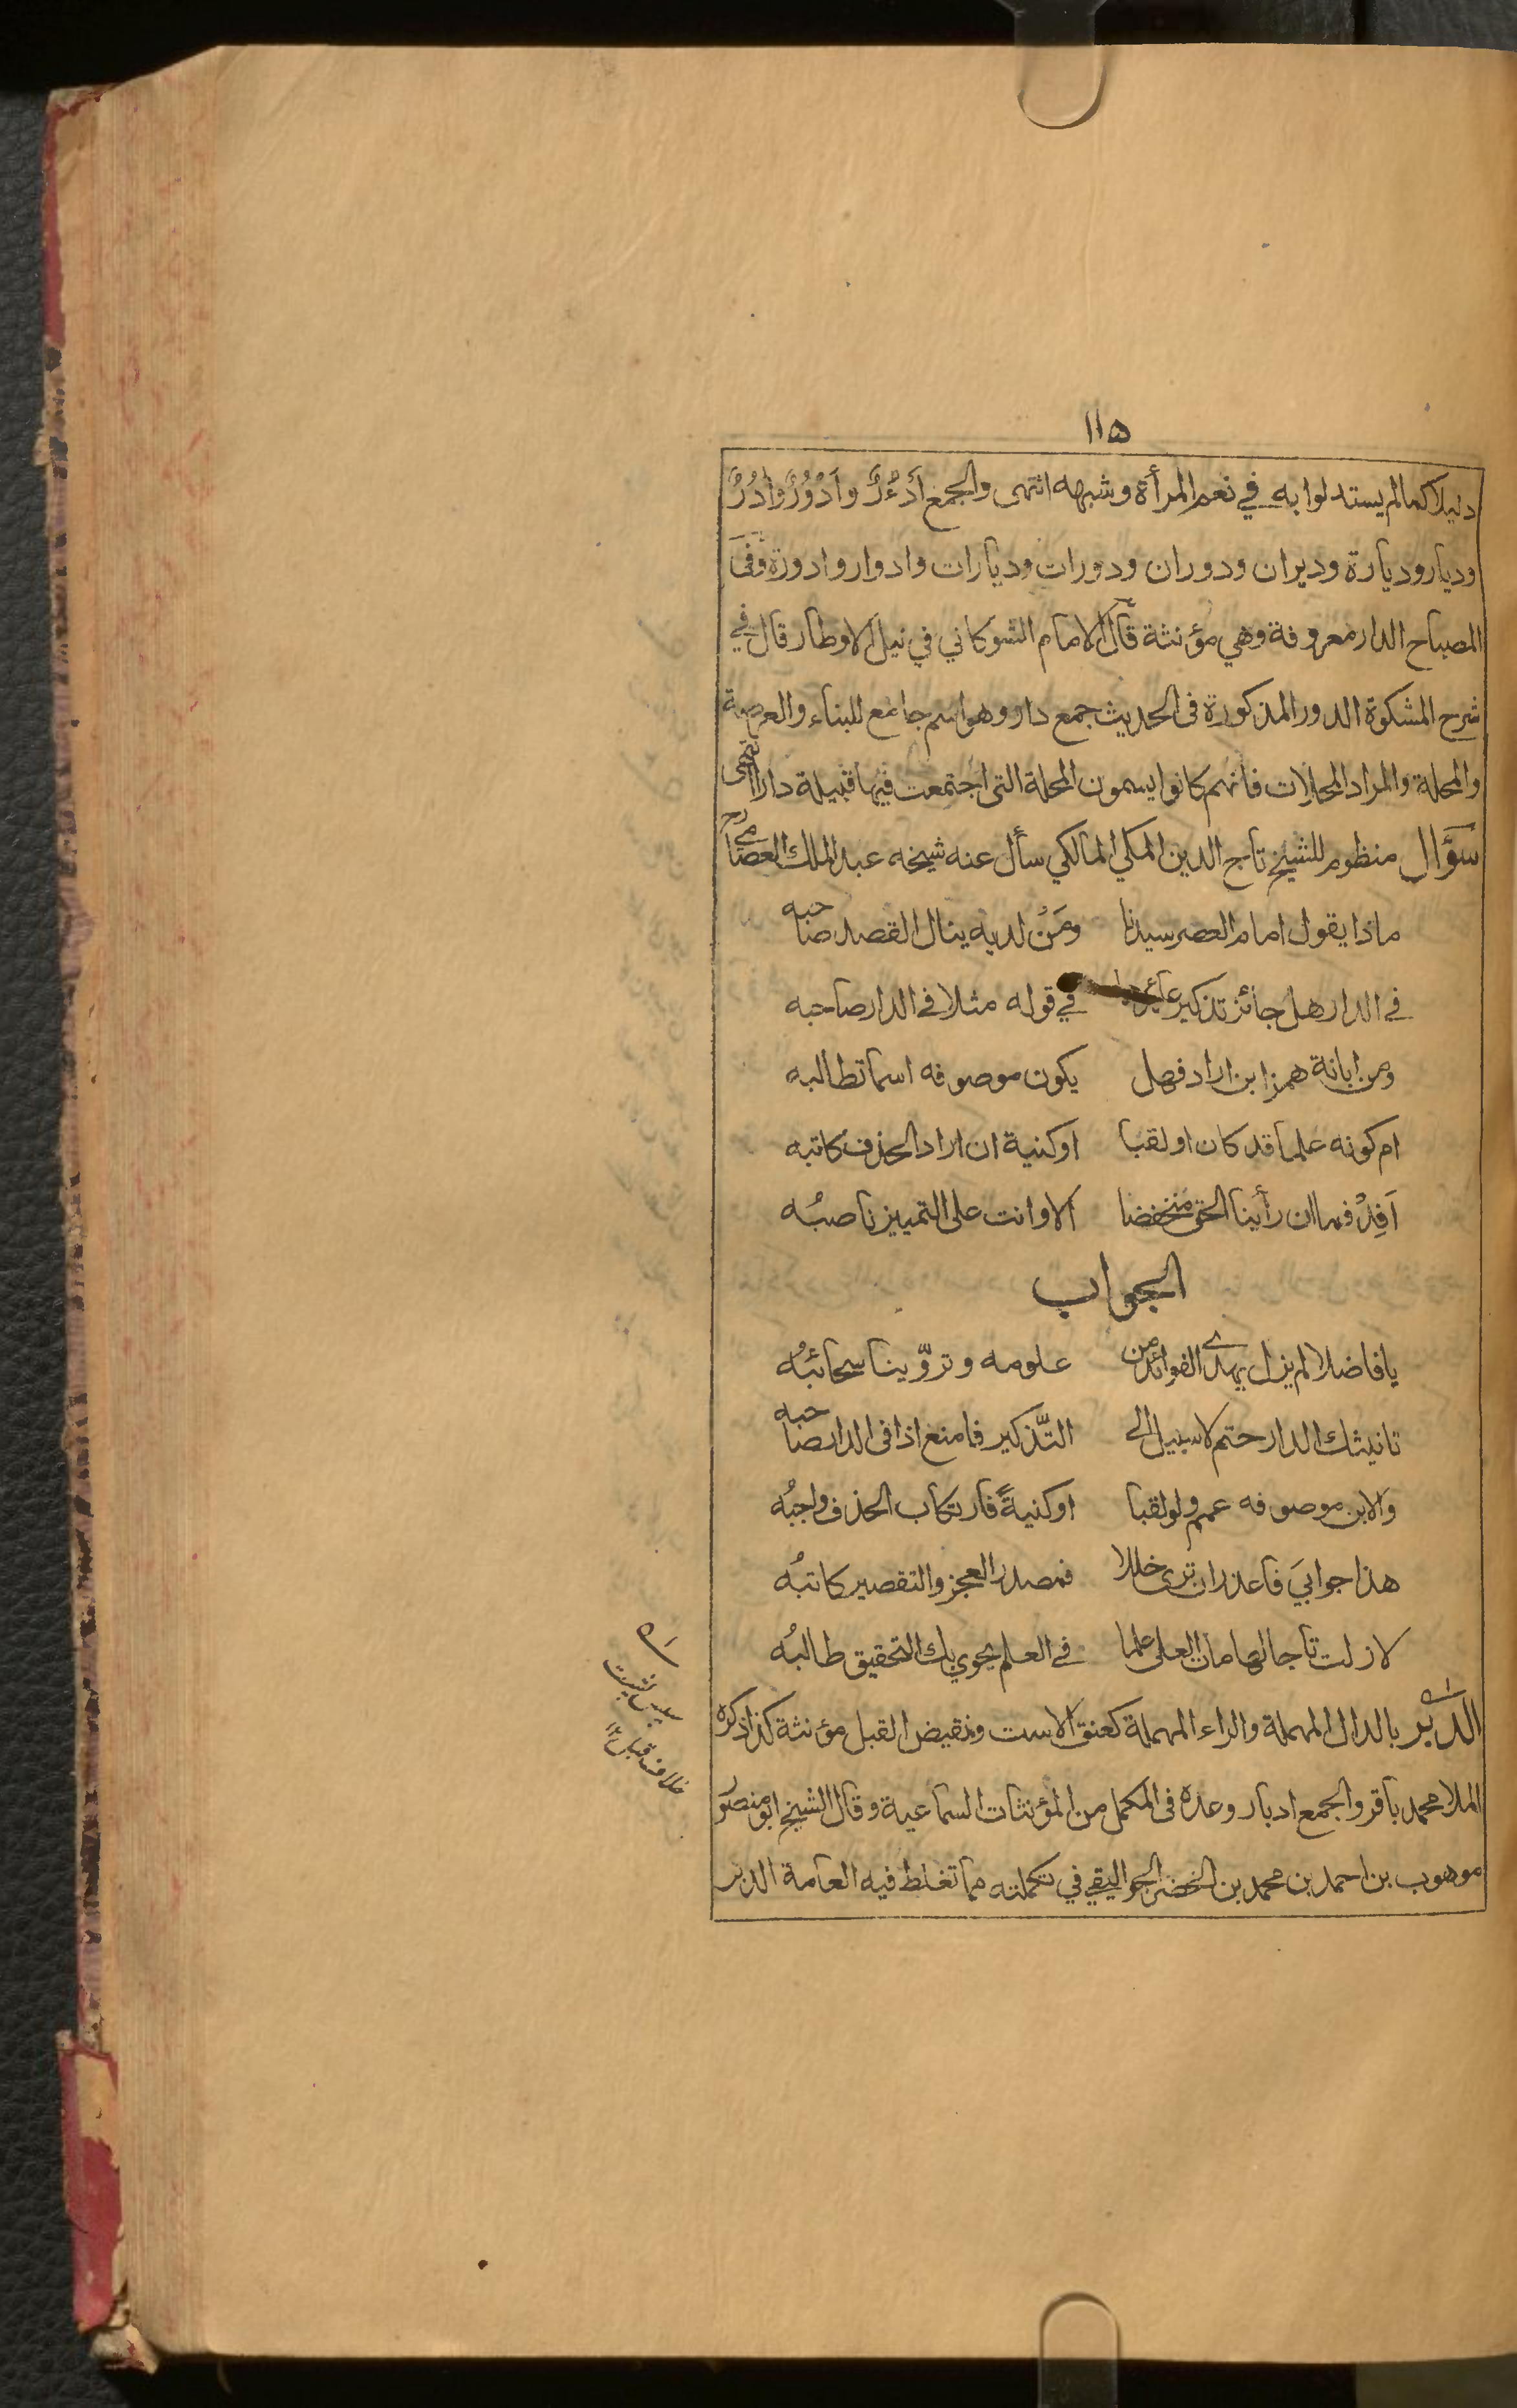 ١١٥
دليلا كما لم يستدلوا به في نعم المرأة وشبهه انتهى والجمع أَدْءُرٌ وأَدْوُرٌ وأَدُرٌ
وديار وديارة وديران ودوران ودورات وديارات وادوار وادورة وَفي
المصباح الدار معروفة وهي مؤنثة قال الامام الشوكاني في نيل الاوطار قال في
شرح المشكوة الدور المذكورة فى الحديث جمع دار وهو اسم جامع للبناء والعرصة
والمحلة والمراد المحلات فانهم كانوا يسمون المحلة التى اجتمعت فيها قبيلة دارا انتهى
سؤال منظوم للشيخ تاج الدين المكي المالكي سأل عنه شيخه عبد الملك العصامي رح
ماذا يقول امام العصر سيدنا ومَنْ لديه ينال القصد صاحبه
في الدار هل جائز تذكير عائدها في قوله مثلا في الدار صاحبه
ومن ابانة همز ابن اراد فهل يكون موصوفه اسما تطالبه
ام كونه علما قد كان او لقبا او كنية ان اراد الحذف كاتبه
اَفِدْ فما ان رأينا الحق منخفضا الا وانت على التمييز ناصبُه
الجواب
يا فاضلا لم يزل يهدي الفوائد من علومه وتروّينا سحائبُه
تانيثك الدار حتم لا سبيل الى التّذكير فامنع اذا فى الدار صاحبه
وَالابن موصوفه عمم ولو لقبا او كنيةً فارتكاب الحذف واجبُه
هذا جوابيَ فاعذر ان ترى خللا فمصدر العجز والتقصير كاتبُه
لا زلت تاجا لهامات العلى علما في العلم يحوي بك التحقيق طالبُه
الدّبر بالدال المهملة والراء المهملة كعنق الاست ونقيض القبل مؤنثة كذا ذكره
الملا محمد باقر والجمع ادبار وعده فى المكمل من المؤنثات السماعية وقال الشيخ ابو منصور
موهوب بن احمد بن محمد بن الخضر الجواليقي في تكملته مما تغلط فيه العامة الدبر
خلاف قبل ١٢